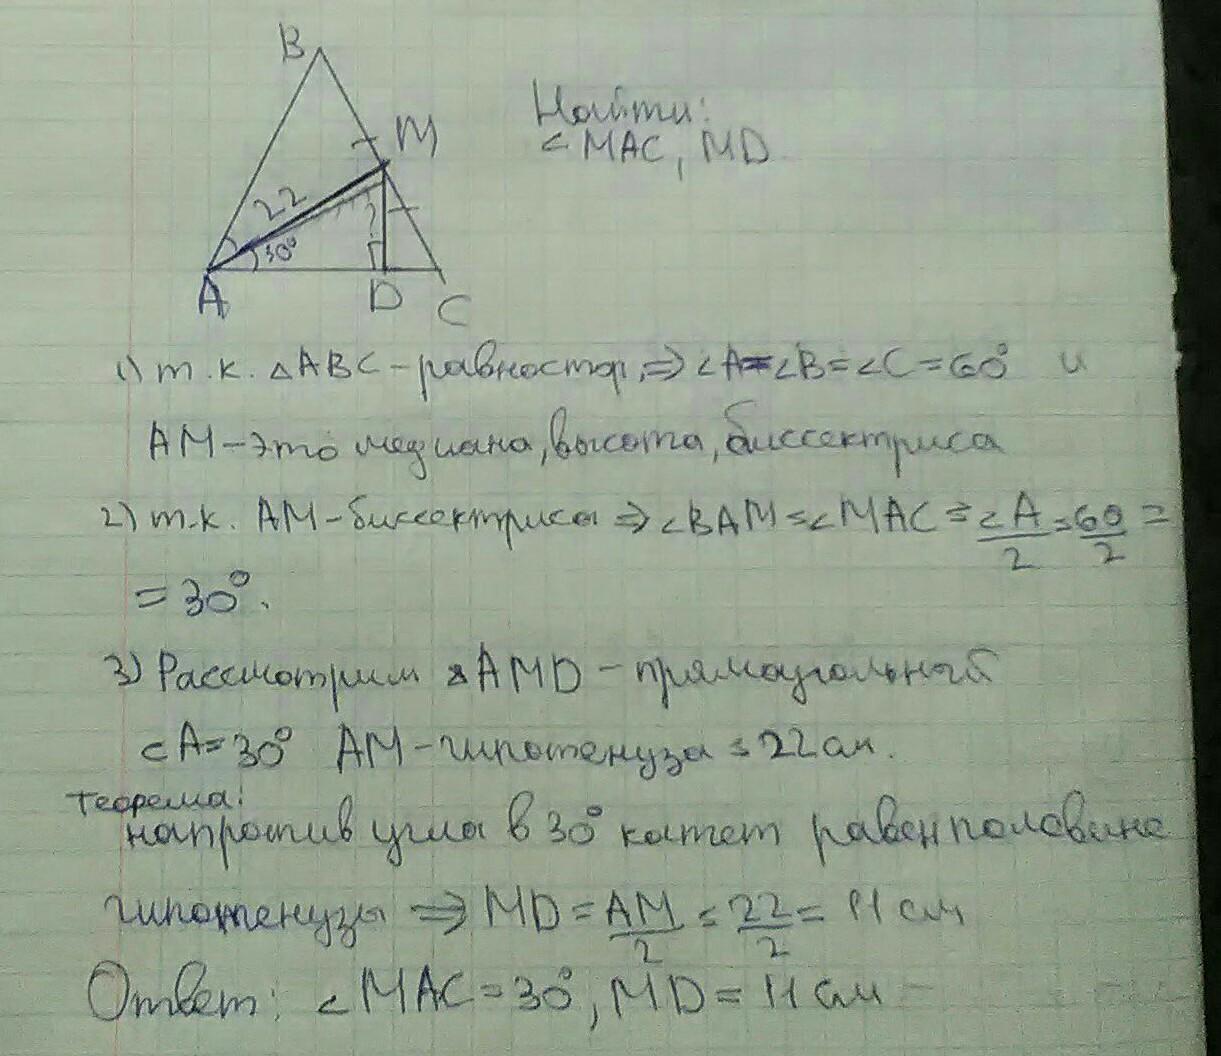 B
M
22
30°
?
A
D
C
Найти:
∠MAC, MD
1) т.к. △ABC – равностор, ⇒ ∠A=∠B=∠C=60° и
AM – это медиана, высота, биссектриса
2) т.к. AM – биссектриса ⇒ ∠BAM = ∠MAC = ∠A/2 = 60/2 =
= 30°.
3) Рассмотрим △AMD – прямоугольный
∠A=30° AM – гипотенуза = 22 см.
Теорема:
напротив угла в 30° катет равен половине
гипотенузы ⇒ MD = AM/2 = 22/2 = 11 см
Ответ: ∠MAC = 30°, MD = 11 см